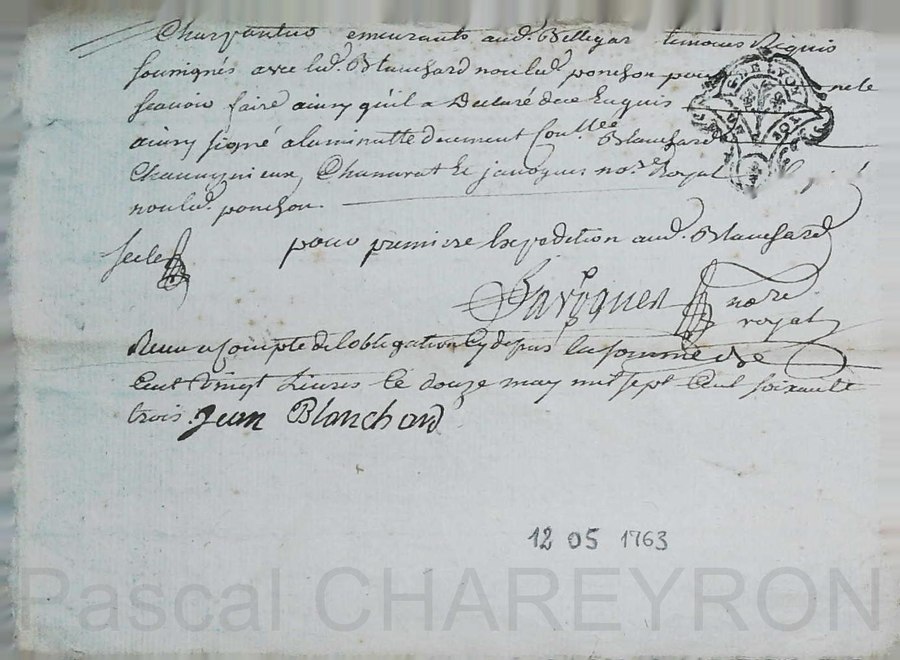 Charpantiers emeurants aud. Bellegar temoins Requis
sousignés avec led. Blanchard non led. ponchon pour ne le
scavoir faire ainsy qu'il a Declaré de ce Enquis
ainsy signé a la minutte duement Coullée Blanchard
no.re Royal
non led. ponchon.
pour premiere Expedition aud. Blanchard
Javogues no.re
royal
Receu a Compte de l'obligation Cy de pas la somme de
Cent Vingt Livres Ce douze may mil sept Cent soixante
trois. Jean Blanchard
12 05 1763
Pascal CHAREYRON